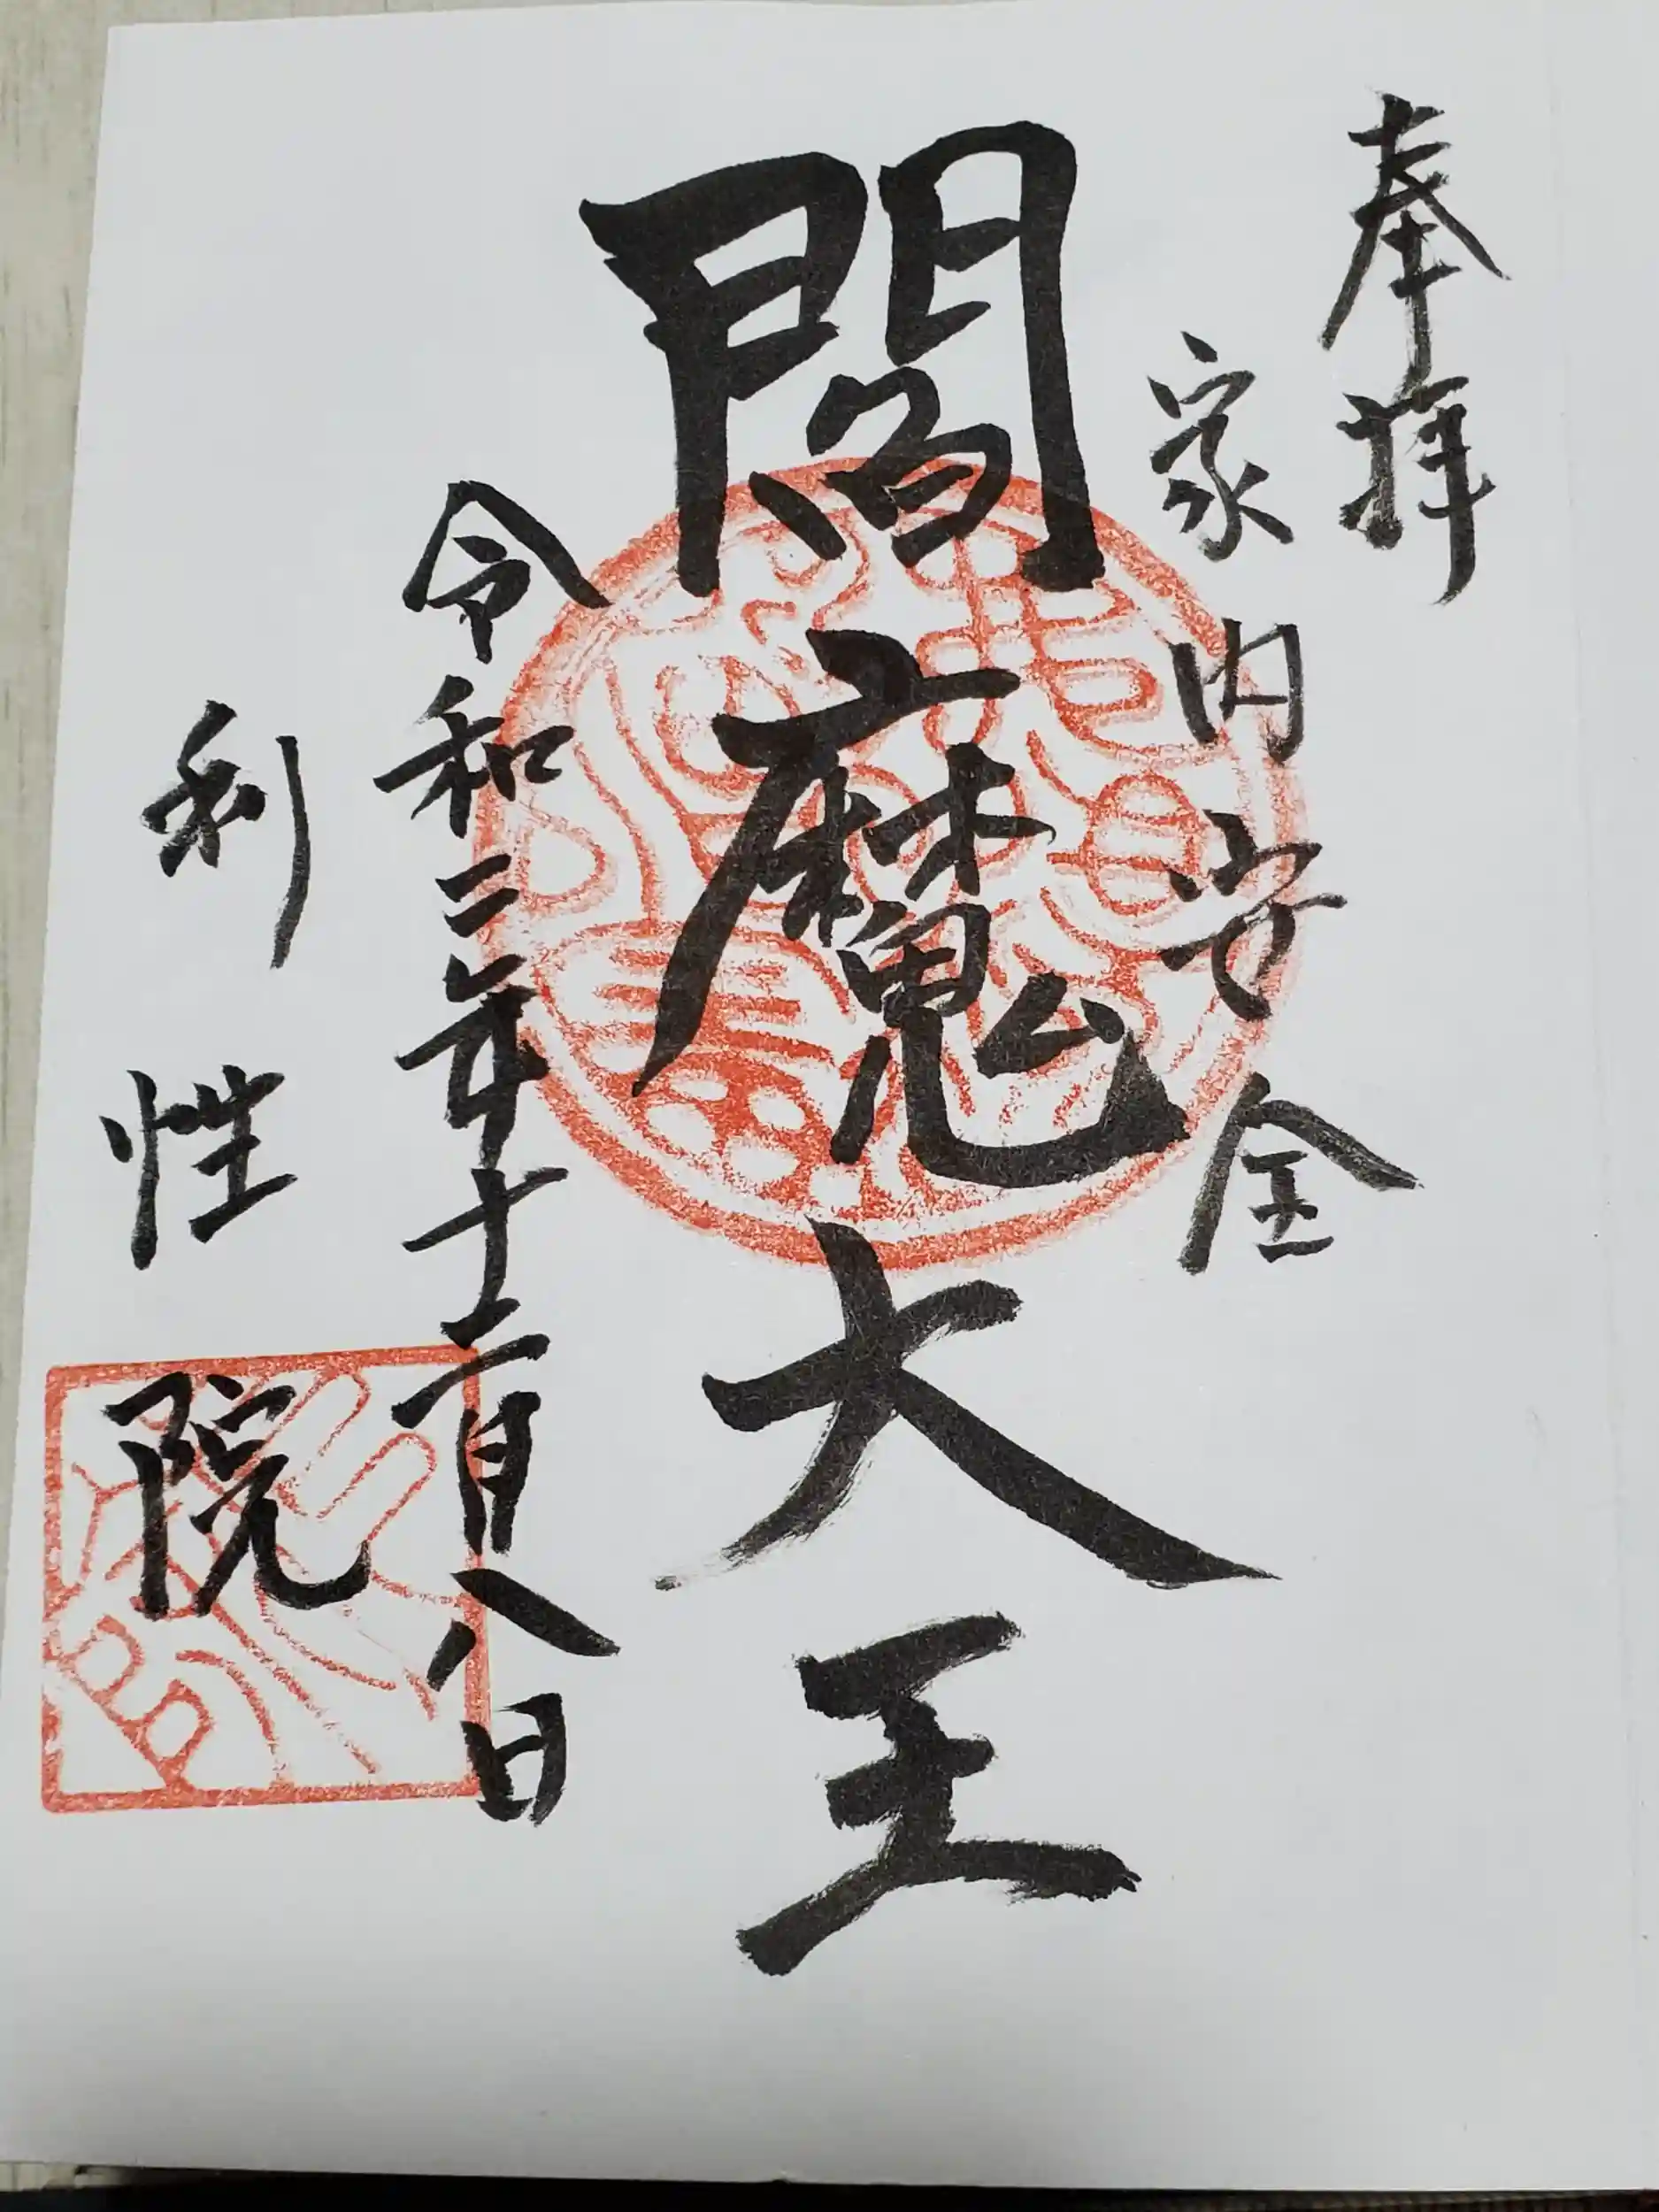 奉拝
家内安全
閻魔大王
令和三年十二月八日
利性院